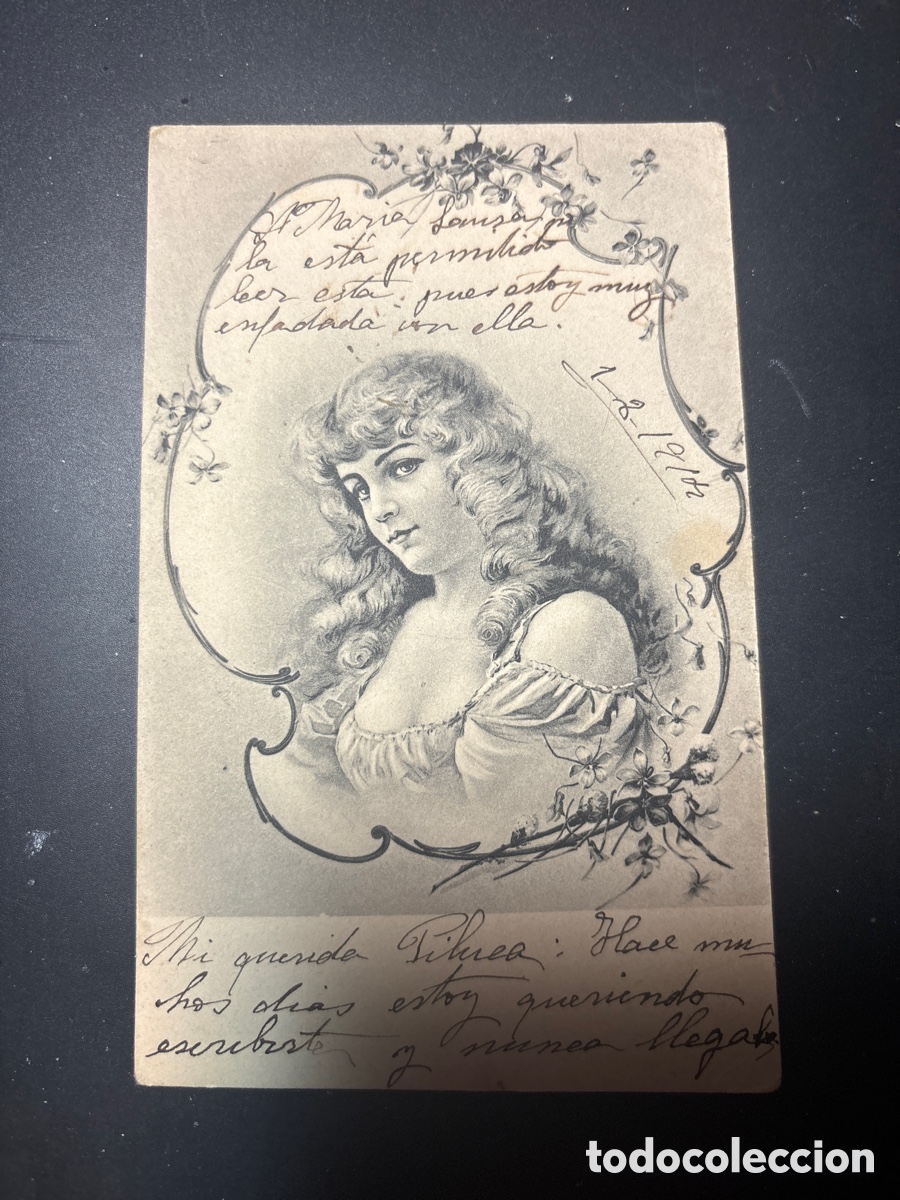 Mª Maria Louisa
la está permitido
leer esta, pues estoy muy
enfadada con ella.
1-2-1914
Mi querida Piluca: Hace mu-
hos dias estoy queriendo
escribirte y nunca llega
todocoleccion